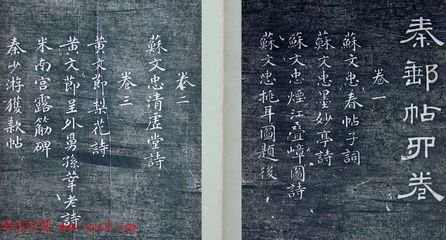 秦郵帖四卷
卷一
蘇文忠春帖子詞
蘇文忠墨妙亭詩
蘇文忠煙江叠嶂圖詩
蘇文忠挑耳圖題後
卷二
蘇文忠清虛堂詩
卷三
黃文節梨花詩
黃文節呈外舅孫莘老詩
米南宮露筋碑
秦少游獲款帖